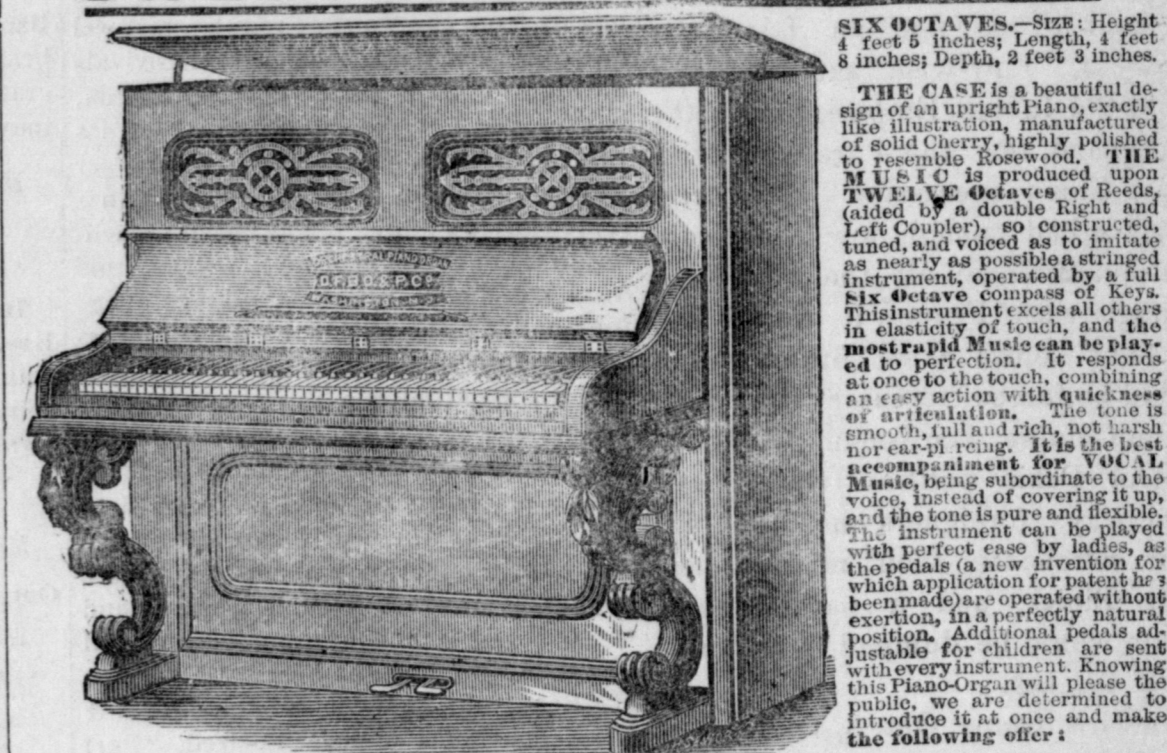 SIX OCTAVES.—SIZE: Height
4 feet 5 inches; Length, 4 feet
8 inches; Depth, 2 feet 3 inches.
THE CASE is a beautiful de-
sign of an upright Piano, exactly
like illustration, manufactured
of solid Cherry, highly polished
to resemble Rosewood. THE
MUSIC is produced upon
TWELVE Octaves of Reeds,
(aided by a double Right and
Left Coupler), so constructed,
tuned, and voiced as to imitate
as nearly as possible a stringed
instrument, operated by a full
Six Octave compass of Keys.
This instrument excels all others
in elasticity of touch, and the
most rapid Music can be play-
ed to perfection. It responds
at once to the touch, combining
an easy action with quickness
of articulation. The tone is
smooth, full and rich, not harsh
nor ear-pi rcing. It is the best
accompaniment for VOCAL
Music, being subordinate to the
voice, instead of covering it up,
and the tone is pure and flexible.
The instrument can be played
with perfect ease by ladies, as
the pedals (a new invention for
which application for patent has
been made) are operated without
exertion, in a perfectly natural
position. Additional pedals ad-
justable for children are sent
with every instrument. Knowing
this Piano-Organ will please the
public, we are determined to
introduce it at once and make
the following offer: